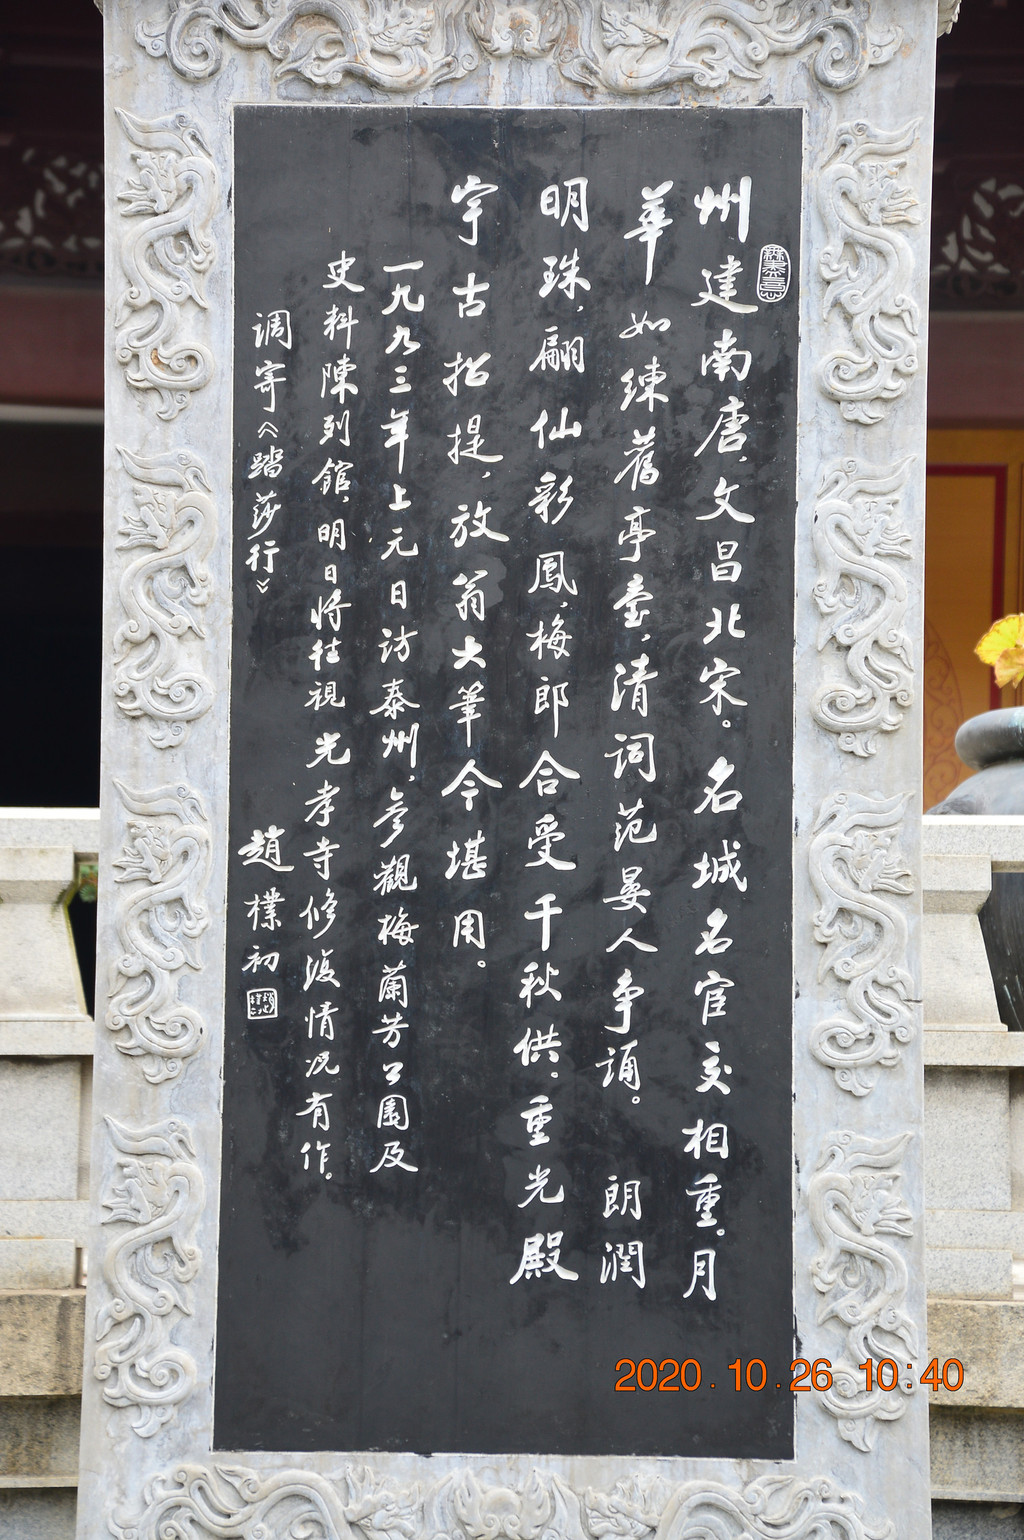 州建南唐，文昌北宋。名城名宦交相重。月
華如練舊亭臺，清词范晏人争誦。 朗潤
明珠，翩仙彩鳳，梅郎合受千秋供。重光殿
宇古招提，放翁大筆今堪用。
一九九三年上元日访泰州，参觀梅蘭芳公園及
史料陳列館，明日将往視光孝寺修復情况有作。
调寄《踏莎行》
趙樸初
2020.10.26 10:40